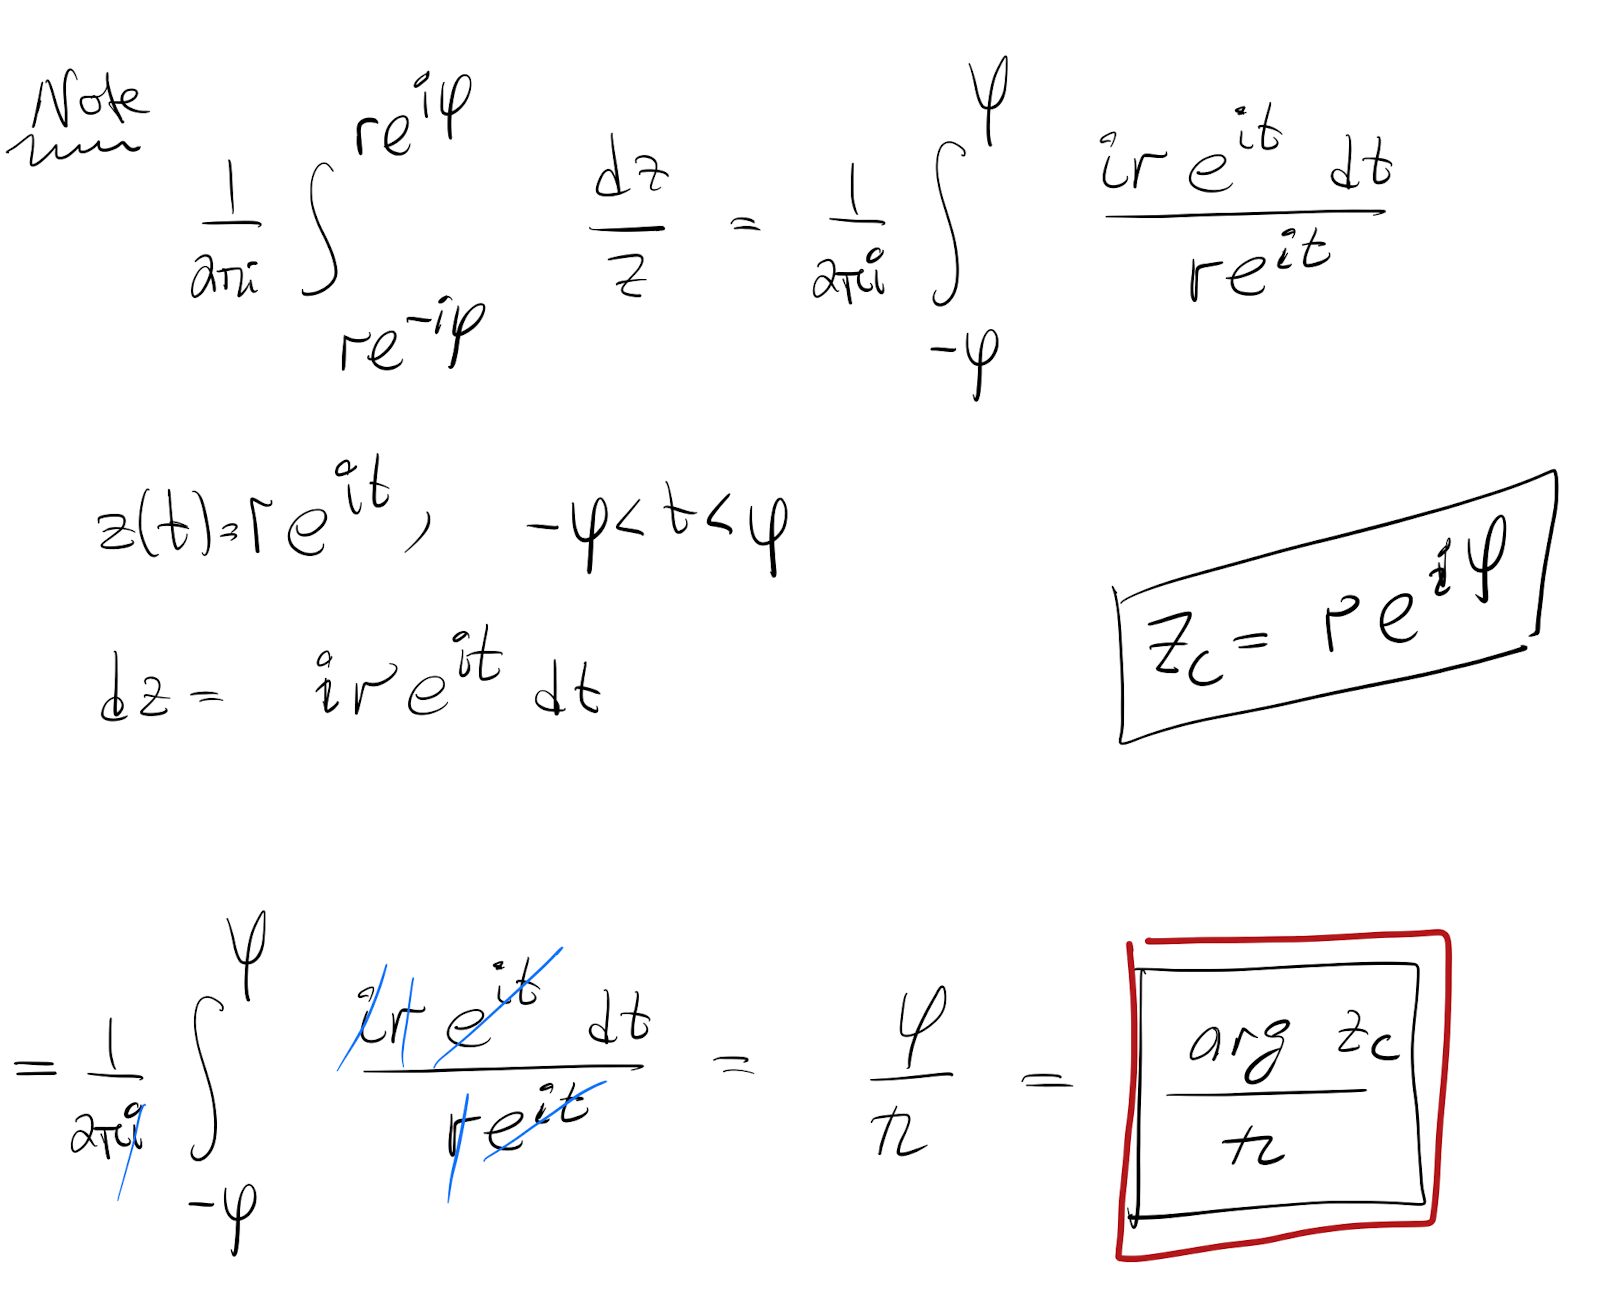 Note
1/2πi ∫_{re^{-iφ}}^{re^{iφ}} dz/z = 1/2πi ∫_{-φ}^{φ} ir e^{it} dt / re^{it}
z(t)=re^{it}, -φ<t<φ
z_c = re^{iφ}
dz = ir e^{it} dt
= 1/2πi ∫_{-φ}^{φ} ir e^{it} dt / re^{it} = φ/π = arg z_c / π